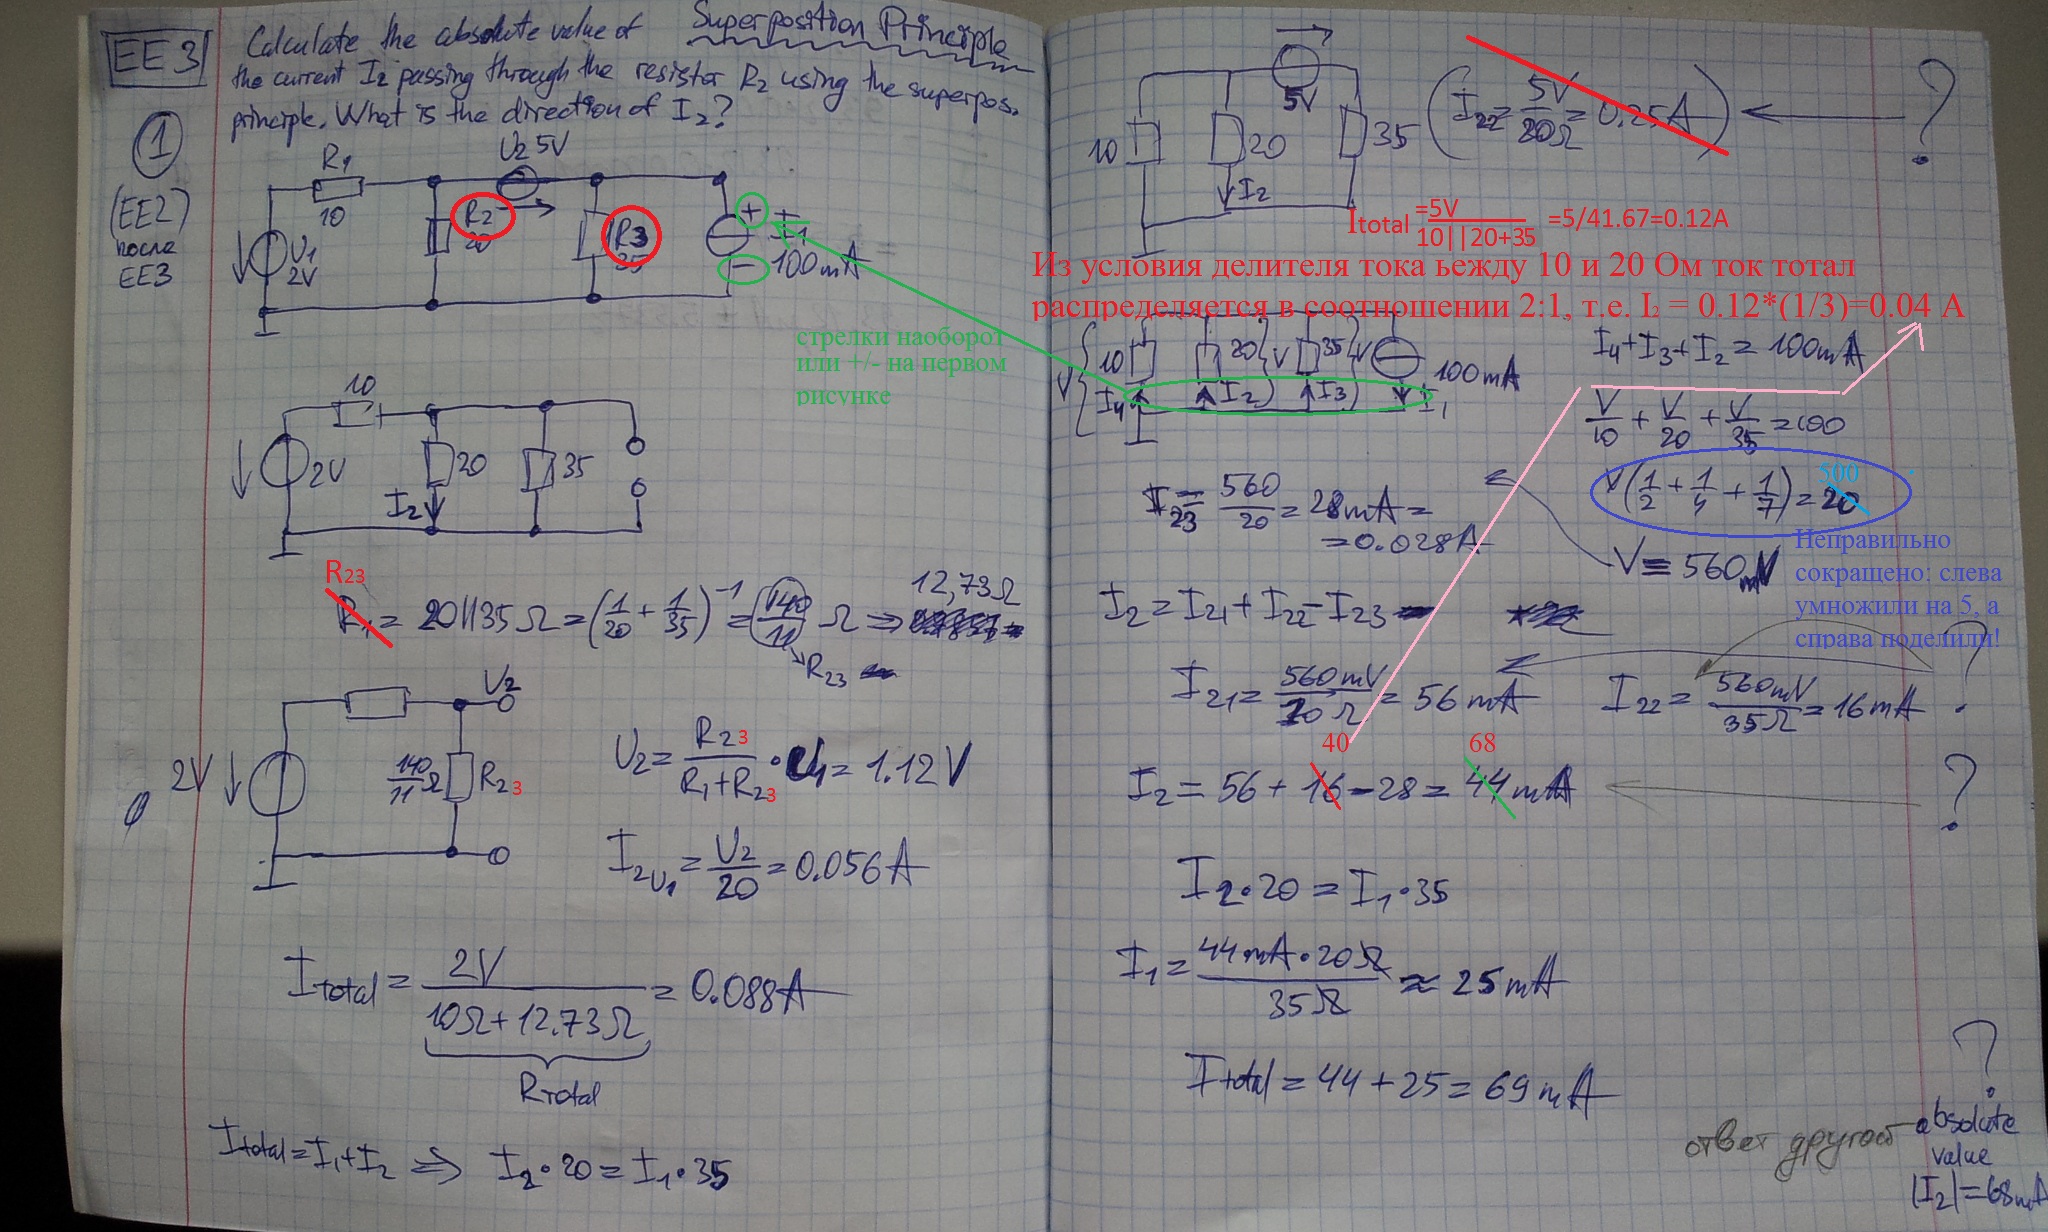 EE3
Calculate the absolute value of
Superposition Principle
the current I₂ passing through the resistor R₂ using the superpos.
principle. What is the direction of I₂?
1
(EE2)
после
EE3
R₁
10
U₂ 5V
R₂
20
R3
35
+
−
I₁
100mA
U₁
2V
стрелки наоборот
или +/- на первом
рисунке
10
2V
20
35
I₂
R₂₃
R₁ = 20||35Ω = (1/20 + 1/35)⁻¹ = (140/11) Ω => 12,73Ω
R₂₃
U₂
2V
140/11 Ω
R23
U₂ = R23/(R₁+R23) · U₁ = 1.12V
I₂U₁ = U₂/20 = 0.056A
Itotal = 2V/(10Ω+12.73Ω) = 0.088A
Rtotal
Itotal = I₁+I₂ => I₂·20 = I₁·35
5V
10
20
35
I₂
(I₂₂ = 5V/20Ω = 0.25A)
?
Itotal =5V/(10||20+35) =5/41.67=0.12A
Из условия делителя тока ьежду 10 и 20 Ом ток тотал
распределяется в соотношении 2:1, т.е. I₂ = 0.12*(1/3)=0.04 А
V
10
20
V
35
V
100mA
I₄
I₂
I₃
I₁
I₄+I₃+I₂ = 100mA
V/10 + V/20 + V/35 = 100
500
V(1/2 + 1/4 + 1/7) = 20
V = 560mV
Неправильно
сокращено: слева
умножили на 5, а
справа поделили!
I₂₃ = 560/20 = 28mA =
= 0.028A
I₂ = I₂₁ + I₂₂ − I₂₃
I₂₁ = 560mV/10Ω = 56mA
I₂₂ = 560mV/35Ω = 16mA
?
40
68
I₂ = 56 + 16 − 28 = 44mA
?
I₂·20 = I₁·35
I₁ = 44mA·20Ω/35Ω ≈ 25mA
Itotal = 44 + 25 = 69mA
?
ответ другой
absolute
value
|I₂| = 68mA